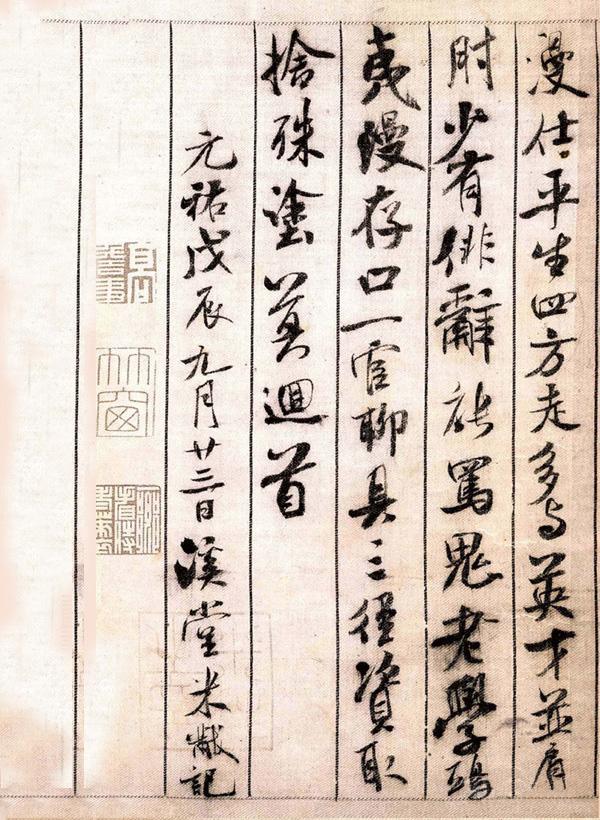 漫仕平生四方走多与英才並肩
肘少有俳辭能罵鬼老學鴟
夷慢存口一官聊具三徑資取
捨殊塗莫迴首
元祐戊辰九月廿三日溪堂米黻記
竹窗